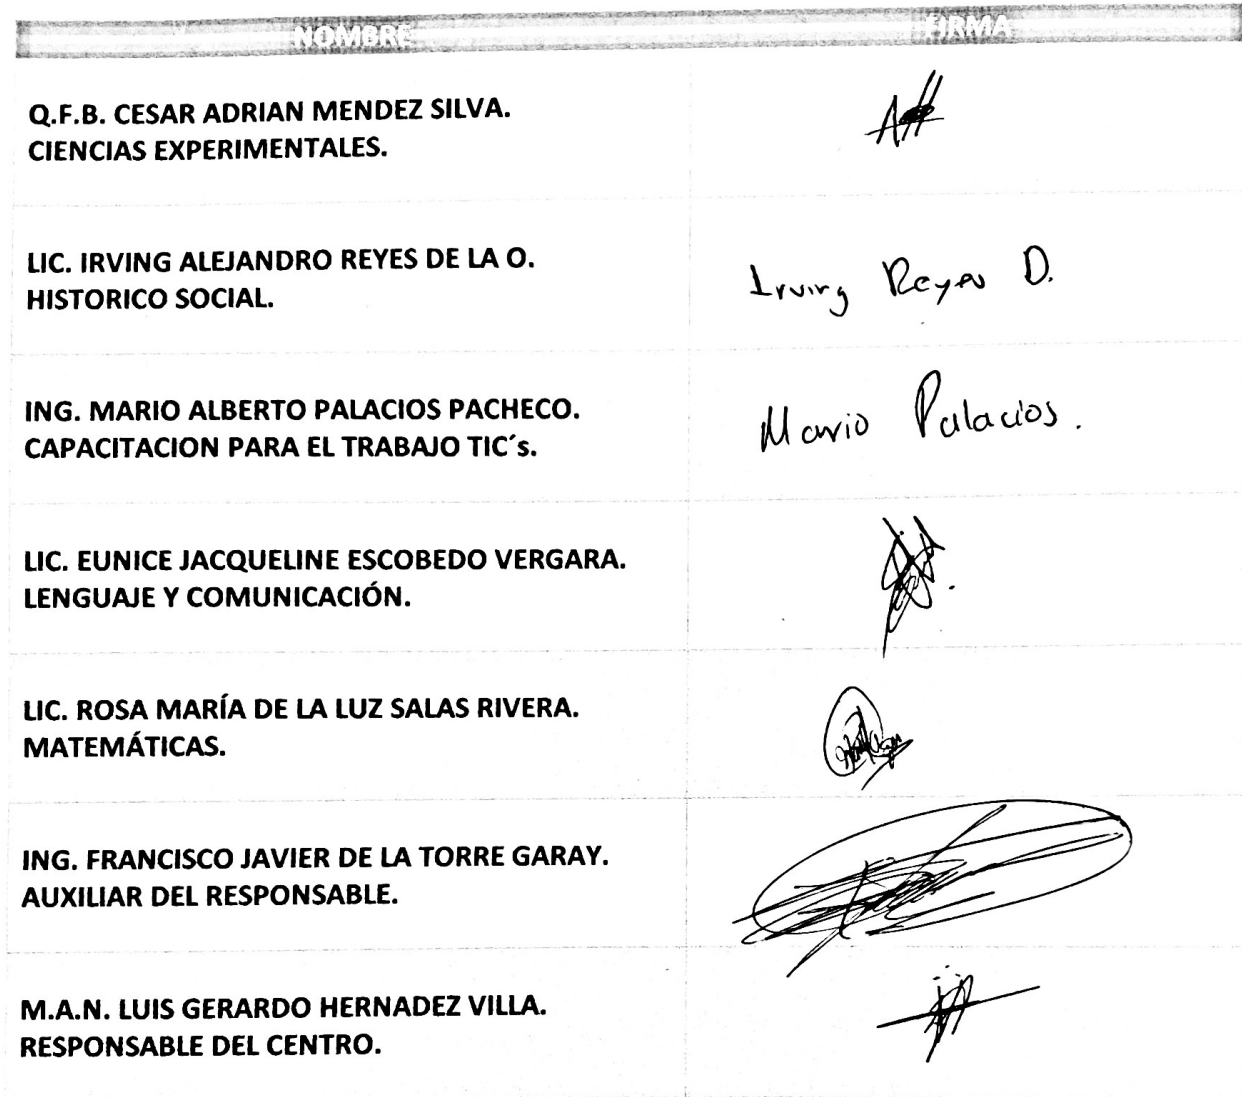 NOMBRE FIRMA
Q.F.B. CESAR ADRIAN MENDEZ SILVA.
CIENCIAS EXPERIMENTALES.
LIC. IRVING ALEJANDRO REYES DE LA O.
HISTORICO SOCIAL.
Irving Reyes D.
ING. MARIO ALBERTO PALACIOS PACHECO.
CAPACITACION PARA EL TRABAJO TIC´s.
Mario Palacios.
LIC. EUNICE JACQUELINE ESCOBEDO VERGARA.
LENGUAJE Y COMUNICACIÓN.
LIC. ROSA MARÍA DE LA LUZ SALAS RIVERA.
MATEMÁTICAS.
ING. FRANCISCO JAVIER DE LA TORRE GARAY.
AUXILIAR DEL RESPONSABLE.
M.A.N. LUIS GERARDO HERNADEZ VILLA.
RESPONSABLE DEL CENTRO.